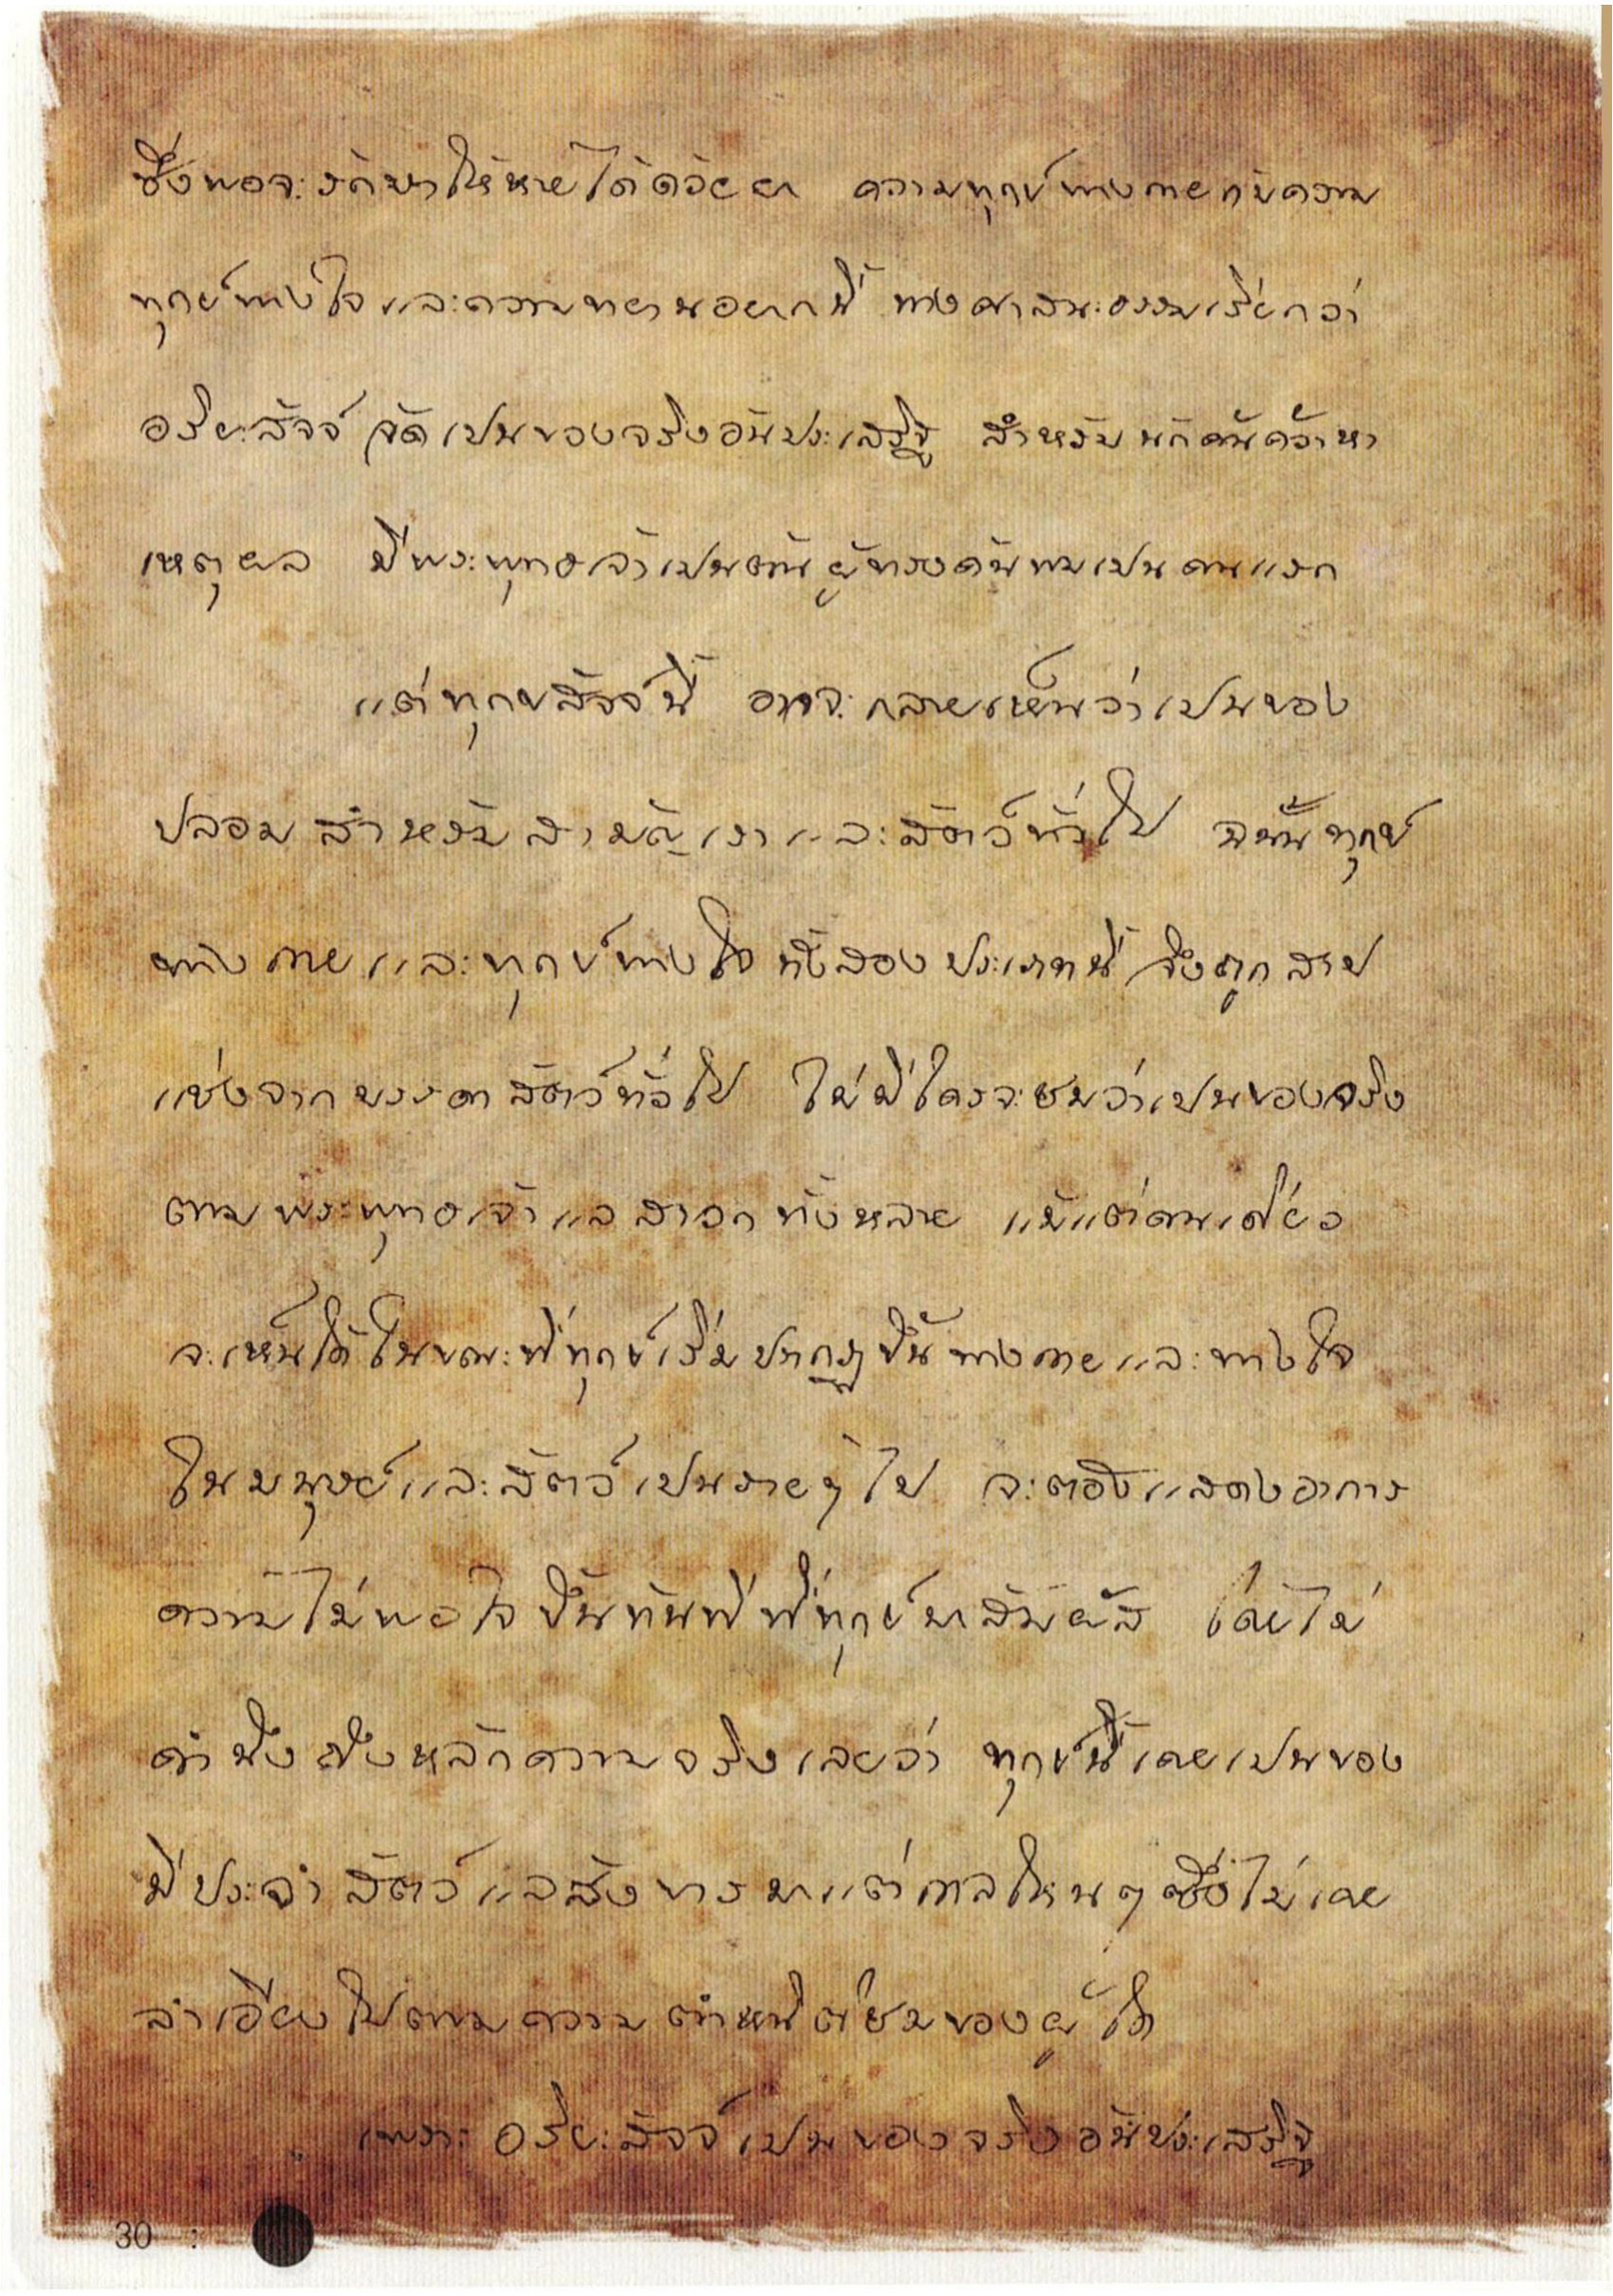 ซึ่งพอจะรักษาให้หายได้ด้วยยา ความทุกข์ทางกายกับความ
ทุกข์ทางใจและความทยานอยากนี้ ทางศาสนะธรรมเรียกว่า
อริยะสัจจ์ จัดเปนของจริงอันประเสริฐ สำหรับนักค้นคว้าหา
เหตุผล มีพระพุทธเจ้าเปนต้นผู้ทรงค้นพบเปนคนแรก
แต่ทุกขสัจจ์นี้ อาจจะกลายเห็นว่าเปนของ
ปลอมสำหรับสามัญเราและสัตว์ทั่วไป ฉนั้นทุกข์
ทางกายและทุกข์ทางใจทั้งสองประเภทนี้ จึงถูกสาป
แช่งจากบรรดาสัตว์ทั่วไป ไม่มีใครจะชมว่าเปนของจริง
ตามพระพุทธเจ้าแลสาวกทั้งหลาย แม้แต่คนเดียว
จะเห็นได้ในขณะที่ทุกข์เริ่มปรากฏขึ้นทางกายและทางใจ
ในมนุษย์และสัตว์เปนรายๆไป จะต้องแสดงอาการ
ความไม่พอใจขึ้นทันทีที่ทุกข์มาสัมผัส โดยไม่
คำนึงถึงหลักความจริงเลยว่า ทุกข์นี้เคยเปนของ
มีประจำสัตว์แลสังขารมาแต่กาลไหนๆ ซึ่งไม่เคย
ลำเอียงไปตามความตำหนิติชมของผู้ใด
เพราะ อริยะสัจจ์เปนของจริงอันประเสริฐ
30 :